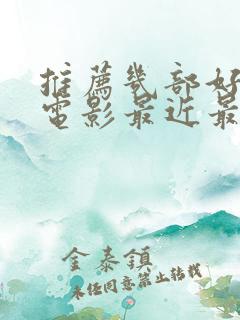 推薦幾部好
電影最近最
金泰鎮
未經同意禁止轉載